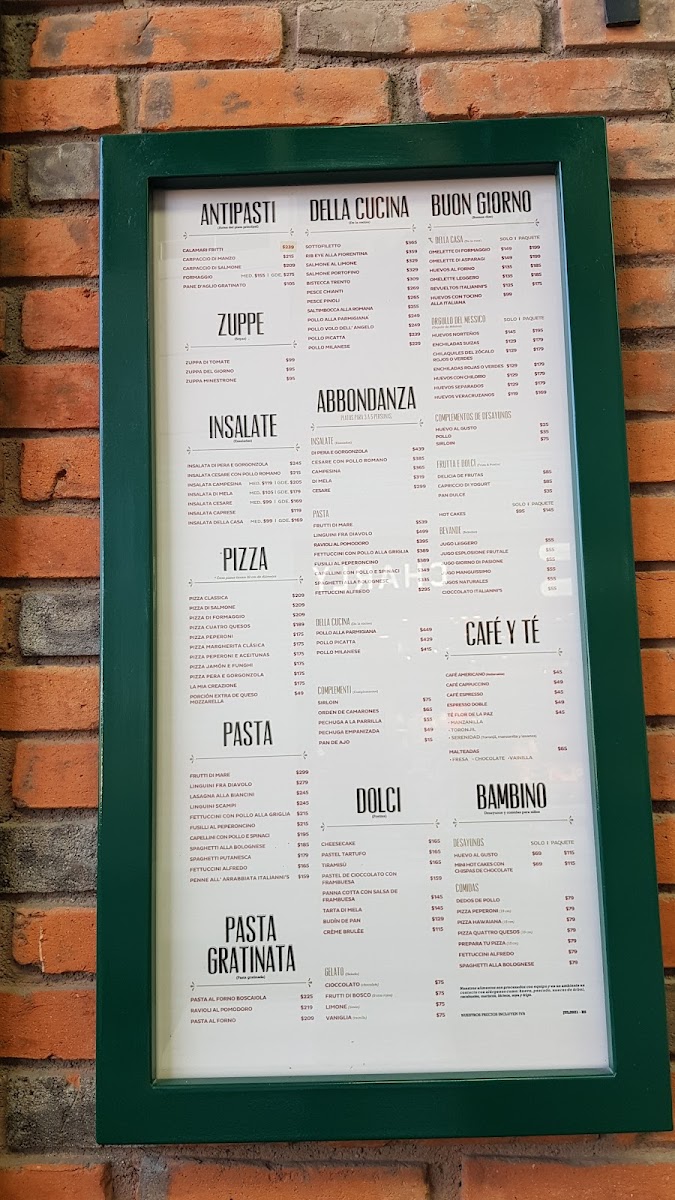 ANTIPASTI
CALAMARI FRITTI $239
CARPACCIO DI MANZO $215
CARPACCIO DI SALMONE $209
FORMAGGIO MED. $155 | GDE. $275
PANE D'AGLIO GRATINATO $105
ZUPPE
ZUPPA DI TOMATE $99
ZUPPA DEL GIORNO $95
ZUPPA MINESTRONE $95
INSALATE
INSALATA DI PERA E GORGONZOLA $245
INSALATA CESARE CON POLLO ROMANO $215
INSALATA CAMPESINA MED. $119 | GDE. $205
INSALATA DI MELA MED. $105 | GDE. $179
INSALATA CESARE MED. $99 | GDE. $169
INSALATA CAPRESE $119
INSALATA DELLA CASA MED. $99 | GDE. $169
PIZZA
PIZZA CLASSICA $209
PIZZA DI SALMONE $209
PIZZA DI FORMAGGIO $209
PIZZA CUATRO QUESOS $189
PIZZA PEPERONI $175
PIZZA MARGHERITA CLÁSICA $175
PIZZA PEPERONI E ACEITUNAS $175
PIZZA JAMÓN E FUNGHI $175
PIZZA PERA E GORGONZOLA $175
LA MIA CREAZIONE $175
PORCIÓN EXTRA DE QUESO $49
MOZZARELLA
PASTA
FRUTTI DI MARE $299
LINGUINI FRA DIAVOLO $279
LASAGNA ALLA BIANCINI $245
LINGUINI SCAMPI $245
FETTUCCINI CON POLLO ALLA GRIGLIA $215
FUSILLI AL PEPERONCINO $215
CAPELLINI CON POLLO E SPINACI $195
SPAGHETTI ALLA BOLOGNESE $185
SPAGHETTI PUTANESCA $179
FETTUCCINI ALFREDO $165
PENNE ALL' ARRABBIATA ITALIANNI'S $159
PASTA
GRATINATA
(Pasta gratinada)
PASTA AL FORNO BOSCAIOLA $225
RAVIOLI AL POMODORO $219
PASTA AL FORNO $209
DELLA CUCINA
(De la cocina)
SOTTOFILETTO $365
RIB EYE ALLA FIORENTINA $359
SALMONE AL LIMONE $329
SALMON PORTOFINO $329
BISTECCA TRENTO $309
PESCE CHIANTI $269
PESCE PINOLI $265
SALTIMBOCCA ALLA ROMANA $255
POLLO ALLA PARMIGIANA $249
POLLO VOLO DELL' ANGELO $249
POLLO PICATTA $239
POLLO MILANESE $229
ABBONDANZA
PLATOS PARA 3 A 5 PERSONAS
INSALATE
DI PERA E GORGONZOLA $439
CESARE CON POLLO ROMANO $385
CAMPESINA $365
DI MELA $319
CESARE $299
PASTA
FRUTTI DI MARE $539
LINGUINI FRA DIAVOLO $499
RAVIOLI AL POMODORO $395
FETTUCCINI CON POLLO ALLA GRIGLIA $389
FUSILLI AL PEPERONCINO $389
CAPELLINI CON POLLO E SPINACI $349
SPAGHETTI ALLA BOLOGNESE $335
FETTUCCINI ALFREDO $295
DELLA CUCINA (De la cocina)
POLLO ALLA PARMIGIANA $449
POLLO PICATTA $429
POLLO MILANESE $415
COMPLEMENTI
SIRLOIN $75
ORDEN DE CAMARONES $65
PECHUGA A LA PARRILLA $55
PECHUGA EMPANIZADA $49
PAN DE AJO $15
DOLCI
(Postres)
CHEESECAKE $165
PASTEL TARTUFO $165
TIRAMISÚ $165
PASTEL DE CIOCCOLATO CON $159
FRAMBUESA
PANNA COTTA CON SALSA DE $145
FRAMBUESA
TARTA DI MELA $145
BUDÍN DE PAN $129
CRÈME BRULÉE $115
GELATO (Helado)
CIOCCOLATO $75
FRUTTI DI BOSCO $75
LIMONE $75
VANIGLIA $75
BUON GIORNO
DELLA CASA SOLO | PAQUETE
OMELETTE DI FORMAGGIO $149 $199
OMELETTE DI ASPARAGI $149 $199
HUEVOS AL FORNO $135 $185
OMELETTE LEGGERO $135 $185
REVUELTOS ITALIANNI'S $125 $175
HUEVOS CON TOCINO $99
ALLA ITALIANA
ORGULLO DEL MESSICO SOLO | PAQUETE
HUEVOS NORTEÑOS $145 $195
ENCHILADAS SUIZAS $129 $179
CHILAQUILES DEL ZÓCALO $129 $179
ROJOS O VERDES
ENCHILADAS ROJAS O VERDES $129 $179
HUEVOS CON CHILORIO $129 $179
HUEVOS SEPARADOS $129 $179
HUEVOS VERACRUZANOS $119 $169
COMPLEMENTOS DE DESAYUNOS
HUEVO AL GUSTO $25
POLLO $35
SIRLOIN $75
FRUTTA E DOLCI
DELICIA DE FRUTAS $85
CAPRICCIO DI YOGURT $85
PAN DULCE $35
SOLO | PAQUETE
HOT CAKES $95 $145
BEVANDE
JUGO LEGGERO $55
JUGO ESPLOSIONE FRUTALE $55
JUGO GIORNO DI PASIONE $55
JUGO MANGUISSIMO $55
JUGOS NATURALES $55
CIOCOLATO ITALIANNI'S $55
CAFÉ Y TÉ
CAFÉ AMERICANO $45
CAFÉ CAPPUCCINO $49
CAFÉ ESPRESSO $45
ESPRESSO DOBLE $49
TÉ FLOR DE LA PAZ $45
• MANZANILLA
• TORONJIL
• SERENIDAD
MALTEADAS $65
• FRESA • CHOCOLATE • VAINILLA
BAMBINO
Desayunos y comidas para niños
DESAYUNOS SOLO | PAQUETE
HUEVO AL GUSTO $69 $115
MINI HOT CAKES CON $69 $115
CHISPAS DE CHOCOLATE
COMIDAS
DEDOS DE POLLO $79
PIZZA PEPERONI $79
PIZZA HAWAIANA $79
PIZZA QUATTRO QUESOS $79
PREPARA TU PIZZA $79
FETTUCCINI ALFREDO $79
SPAGHETTI ALLA BOLOGNESE $79
NUESTROS PRECIOS INCLUYEN IVA